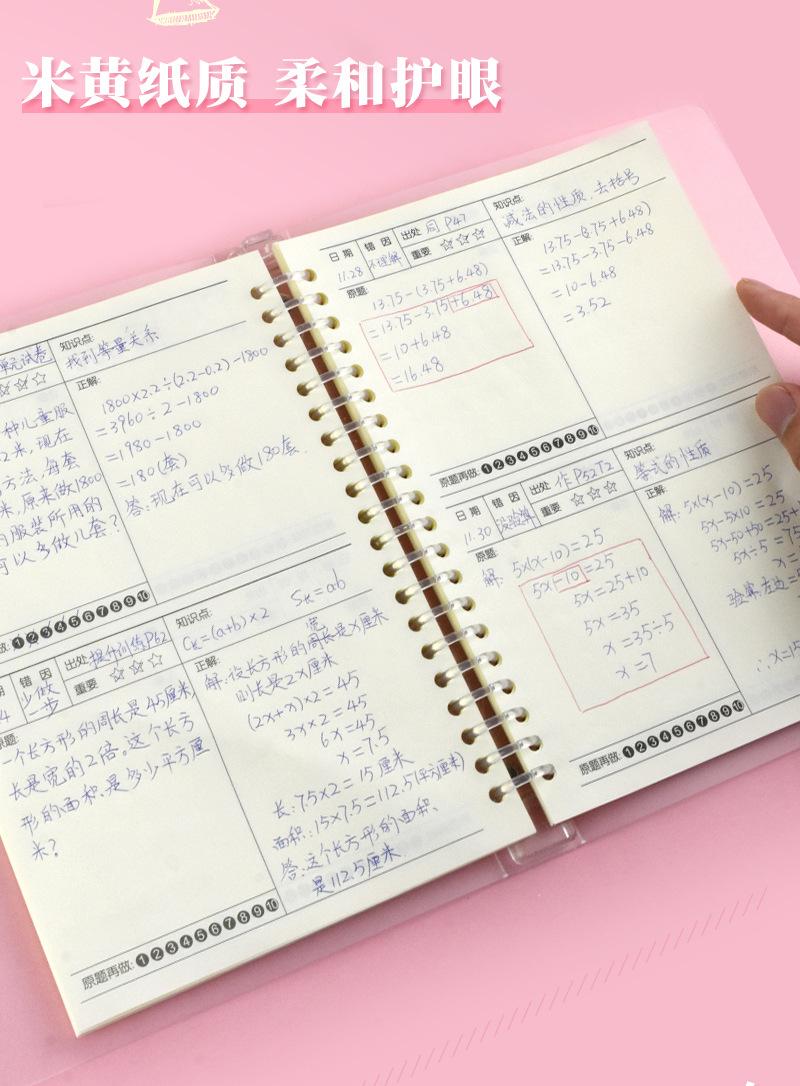 米黄纸质 柔和护眼
单元试卷
知识点:
找到等量关系
正解:
种儿童服
2米,现在
方法,每套
米,原来做1800
服装所用的
可以多做几套?
1800×2.2÷(2.2-0.2)-1800
=3960÷2-1800
=1980-1800
=180(套)
答:现在可以多做180套.
做: 1 2 3 4 5 6 7 8 9 10
期 错因 出处 提升训练P62
4 少做一步 重要
知识点:
C长=(a+b)×2 S长=ab
原题:
一个长方形的周长是45厘米,
长是宽的2倍。这个长方
形的面积,是多少平方厘
米?
正解:
宽
解:设长方形的周长是x厘米
则长是2x厘米
(2x+x)×2=45
3x×2=45
6x=45
x=7.5
长:7.5×2=15厘米
面积:15×7.5=112.5(平方厘米)
答:这个长方形的面积,
是112.5厘米
原题再做: 1 2 3 4 5 6 7 8 9 10
日期 错因 出处 同P47
11.28 不理解 重要
知识点:
减法的性质,去括号
原题:
13.75-(3.75+6.48)
=13.75-3.75+6.48
=10+6.48
=16.48
正解:
13.75-(3.75+6.48)
=13.75-3.75-6.48
=10-6.48
=3.52
原题再做: 1 2 3 4 5 6 7 8 9 10
日期 错因 出处 作P52T2
11.30 没验算 重要
知识点:
等式的性质
原题:
解: 5×(x-10)=25
5x-10=25
5x=25+10
5x=35
x=35÷5
x=7
正解:
解: 5×(x-10)=25
5x-5×10=25
5x-50+50=25+
5x÷5=75
x=
验算:左边=5
∴x=15
原题再做: 1 2 3 4 5 6 7 8 9 10